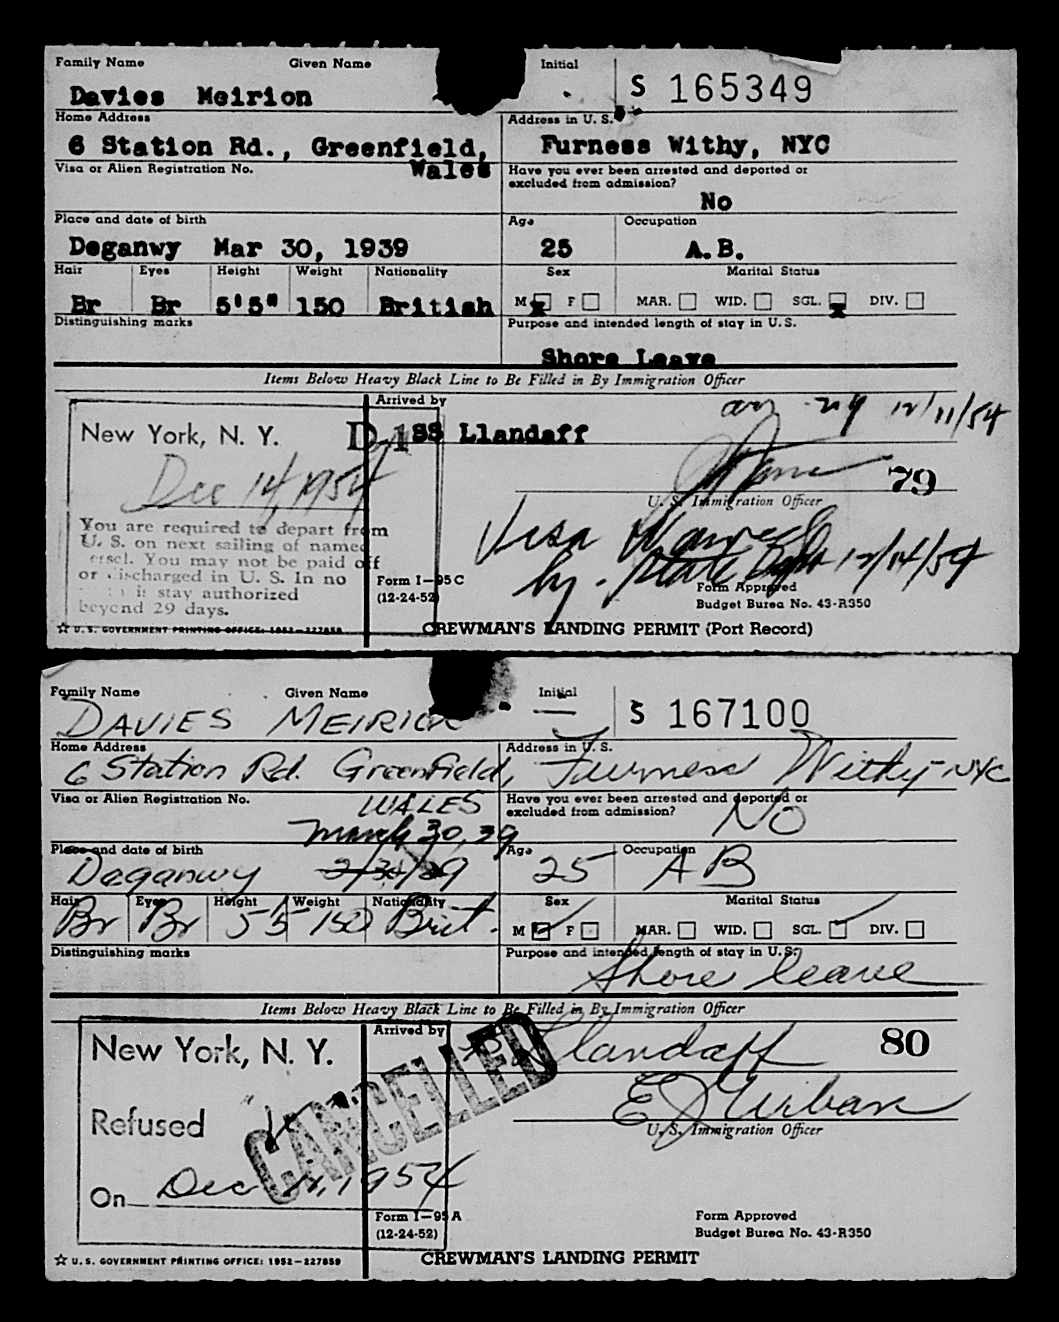 Family Name Given Name Initial S 165349
Davies Meirion -
Home Address Address in U. S.
6 Station Rd., Greenfield, Wales Furness Withy, NYC
Visa or Alien Registration No. Have you ever been arrested and deported or
excluded from admission?
No
Place and date of birth Age Occupation
Deganwy Mar 30, 1939 25 A.B.
Hair Eyes Height Weight Nationality Sex Marital Status
Br Br 5'5" 150 British M x F MAR. WID. SGL. x DIV.
Distinguishing marks Purpose and intended length of stay in U. S.
Shore Leave
Items Below Heavy Black Line to Be Filled in By Immigration Officer
Arrived by
arr ny 12/11/54
New York, N. Y. D-1 SS Llandaff
Dec 14, 1954
79
U. S. Immigration Officer
You are required to depart from
U. S. on next sailing of named
vessel. You may not be paid off
or discharged in U. S. In no
is stay authorized
beyond 29 days.
Visa Waived
by State Dept 12/14/54
Form I-95 C
(12-24-52)
Form Approved
Budget Burea No. 43-R350
☆ U. S. GOVERNMENT PRINTING OFFICE: 1952-227859
CREWMAN'S LANDING PERMIT (Port Record)
Family Name Given Name Initial S 167100
DAVIES MEIRION —
Home Address Address in U. S.
6 Station Rd. Greenfield, Furness Withy-NYC
WALES
Visa or Alien Registration No. Have you ever been arrested and deported or
excluded from admission?
No
March 30, 39
Place and date of birth Age Occupation
Deganwy 25 AB
Hair Eyes Height Weight Nationality Sex Marital Status
Br Br 55 150 Brit. M F MAR. WID. SGL. DIV.
Distinguishing marks Purpose and intended length of stay in U. S.
Shore leave
Items Below Heavy Black Line to Be Filled in By Immigration Officer
Arrived by
Llandaff 80
New York, N. Y.
CANCELLED
E J Urban
U. S. Immigration Officer
Refused
On Dec 11, 1954
Form I-95 A
(12-24-52)
Form Approved
Budget Burea No. 43-R350
☆ U. S. GOVERNMENT PRINTING OFFICE: 1952-227859
CREWMAN'S LANDING PERMIT